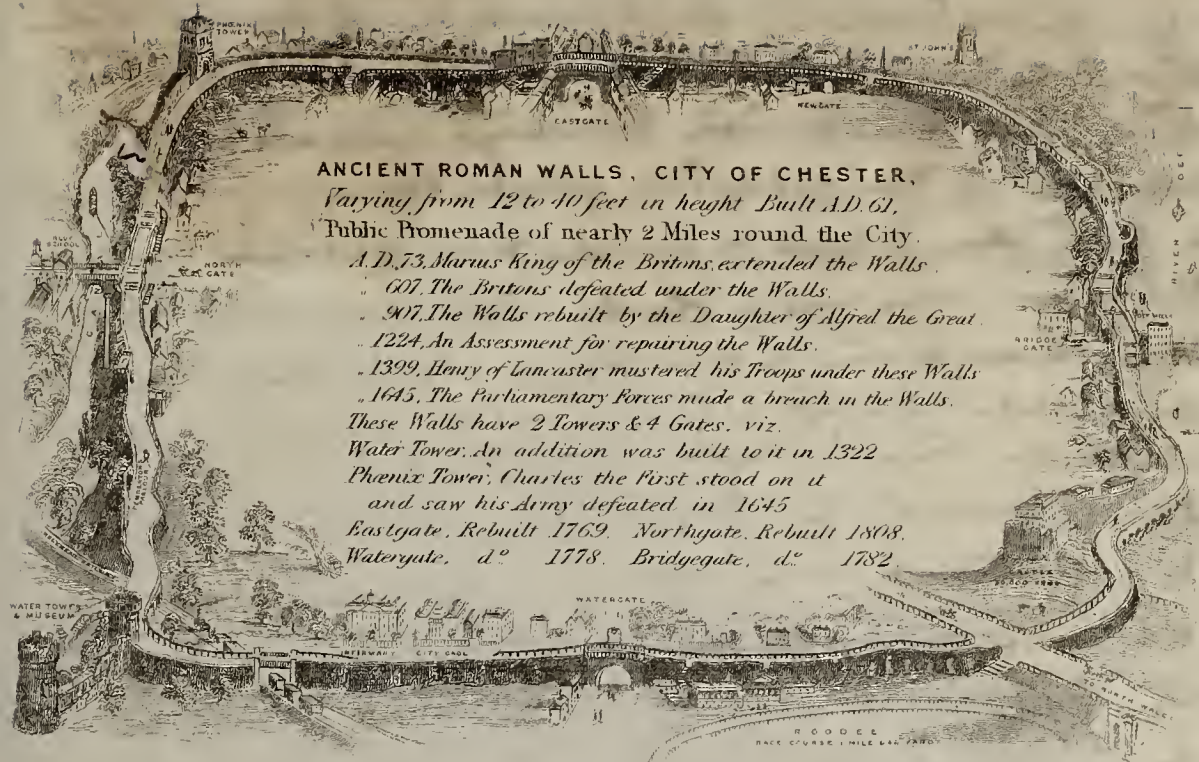 PHŒNIX
TOWER
ST JOHN'S
EASTGATE
NEWGATE
ANCIENT ROMAN WALLS, CITY OF CHESTER,
Varying from 12 to 40 feet in height Built A.D. 61,
Public Promenade of nearly 2 Miles round the City.
A.D. 73, Marius King of the Britons, extended the Walls.
„ 607, The Britons defeated under the Walls.
„ 907, The Walls rebuilt by the Daughter of Alfred the Great.
„ 1224, An Assessment for repairing the Walls.
„ 1399, Henry of Lancaster mustered his Troops under these Walls
„ 1645, The Parliamentary Forces made a breach in the Walls.
These Walls have 2 Towers & 4 Gates. viz.
Water Tower, An addition was built to it in 1322
Phœnix Tower, Charles the First stood on it
and saw his Army defeated in 1645
Eastgate, Rebuilt 1769. Northgate, Rebuilt 1808.
Watergate, do. 1778. Bridgegate, do. 1782.
BLUE
SCHOOL
NORTH
GATE
RIVER DEE
BRIDGE
GATE
WATER TOWER
& MUSEUM
WATERGATE
CITY GAOL
ROODEE
RACE COURSE 1 MILE